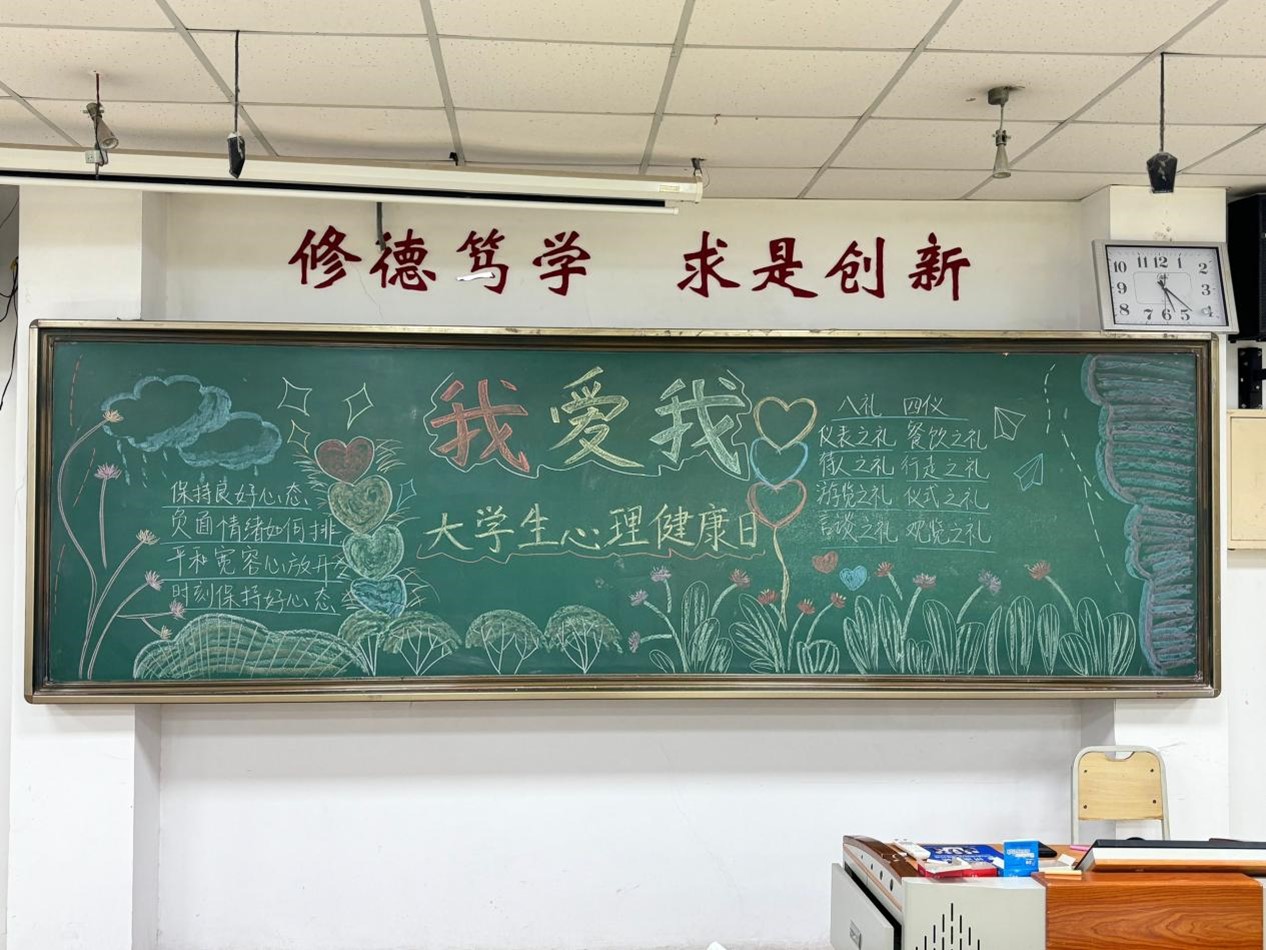 修德笃学 求是创新
我爱我
大学生心理健康日
保持良好心态
负面情绪如何排
平和宽容心放开
时刻保持好心态
八礼 四仪
仪表之礼 餐饮之礼
待人之礼 行走之礼
游览之礼 仪式之礼
言谈之礼 观览之礼
10 11 12 1 2
9 3
8 7 6 5 4